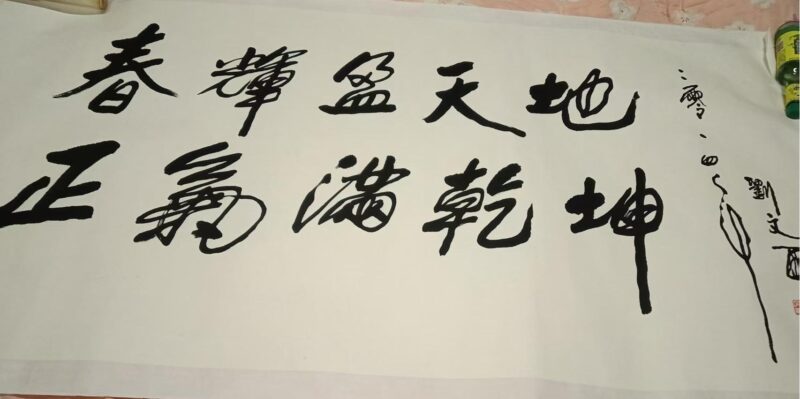 春輝盈天地
正氣滿乾坤
二零一四年
劉文西